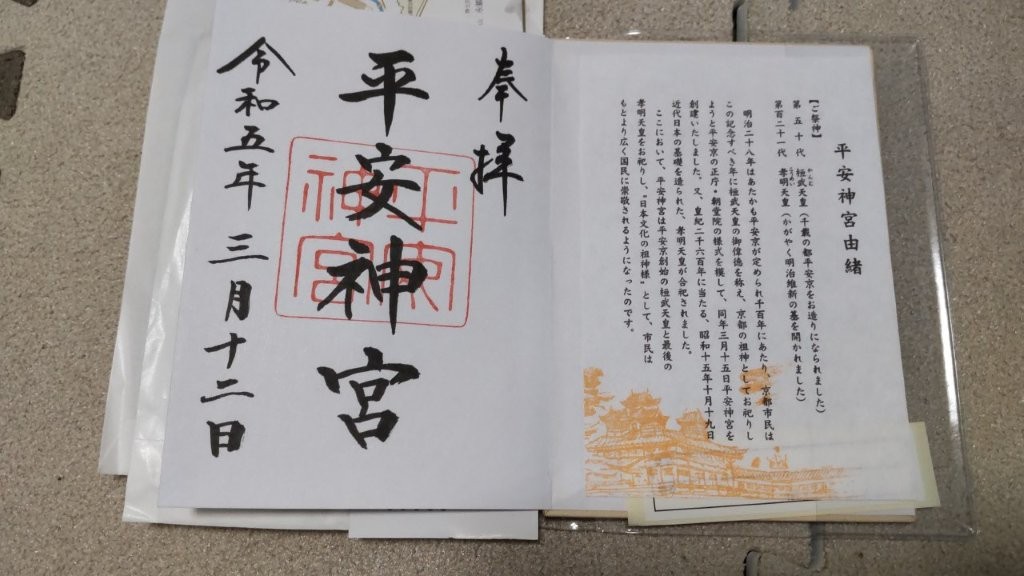 平安神宮由緒
【ご祭神】
第五十代 桓武天皇(千載の都平安京をお造りになられました)
かんむ
第百二十一代 孝明天皇(かがやく明治維新の基を開かれました)
こうめい
明治二八年はあたかも平安京が定められ千百年にあたり、京都市民は
この記念すべき年に桓武天皇の御偉徳を称え、京都の祖神としてお祀りし
ようと平安京の正庁・朝堂院の様式を模して、同年三月十五日平安神宮を
創建いたしました。又、皇紀二千六百年に当たる、昭和十五年十月十九日
近代日本の基礎を造られた、孝明天皇が合祀されました。
ここにおいて、平安神宮は平安京創始の桓武天皇と最後の
孝明天皇をお祀りし、"日本文化の祖神様"として、市民は
もとより広く国民に崇敬されるようになったのです。
奉拝
平安神宮
平安
神宮
令和五年三月十二日